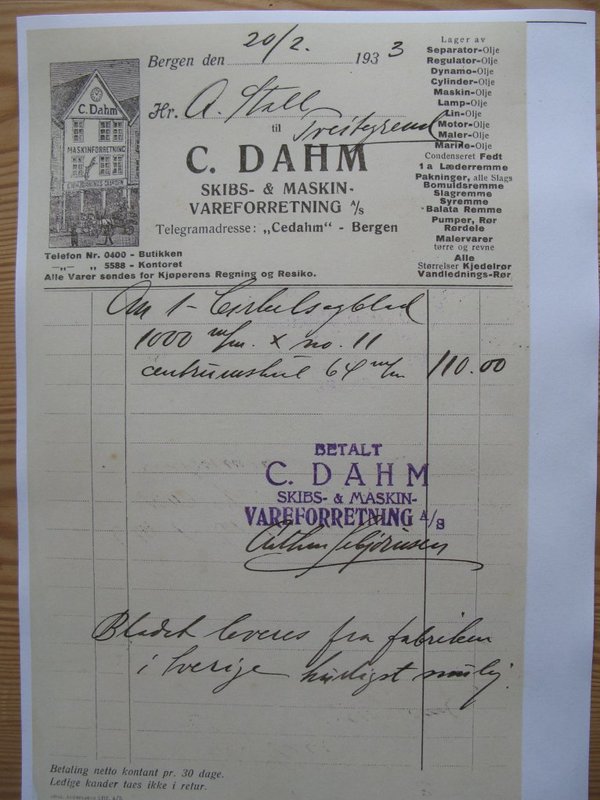 Bergen den 20/2. 1933
Hr. A. Stall
til
C. DAHM
SKIBS- & MASKIN-
VAREFORRETNING A/S
Telegramadresse: „Cedahm" - Bergen
C. Dahm
MASKINFORRETNING
Telefon Nr. 0400 - Butikken
—„— „ 5588 - Kontoret
Alle Varer sendes for Kjøperens Regning og Resiko.
Lager av
Separator-Olje
Regulator-Olje
Dynamo-Olje
Cylinder-Olje
Maskin-Olje
Lamp-Olje
Lin-Olje
Motor-Olje
Maler-Olje
Marine-Olje
Condenseret Fedt
1a Læderremme
Pakninger, alle Slags
Bomuldsremme
Slagremme
Syremme
Balata Remme
Pumper, Rør
Rørdele
Malervarer
tørre og revne
Alle
Størrelser Kjedelrør
Vandlednings-Rør
An 1 - Cirkelsagblad
1000 m/m. x no. 11
centrumshul 64 m/m 110.00
BETALT
C. DAHM
SKIBS- & MASKIN-
VAREFORRETNING A/S
Bladet leveres fra fabriken
i Sverige hurtigst mulig.
Betaling netto kontant pr. 30 dage.
Ledige kander taes ikke i retur.